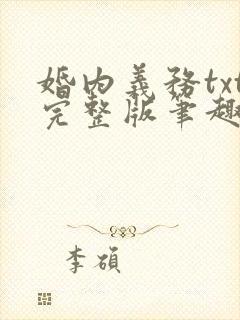 婚内義務txt
完整版筆趣
李碩